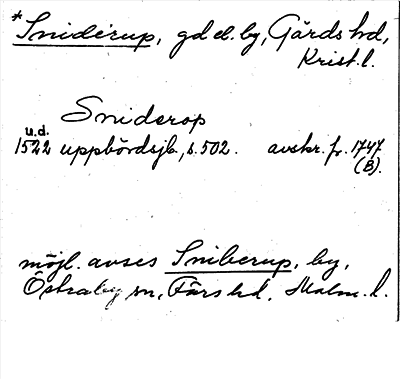 *Sniderup, gd el. by, Gärds hd,
Krist. l.
Sniderop
u.d.
1522 uppbördsjb., s. 502. avskr. fr. 1747
(B).
möjl. avses Sniberup, by,
Östraby sn, Färs hd, Malm. l.